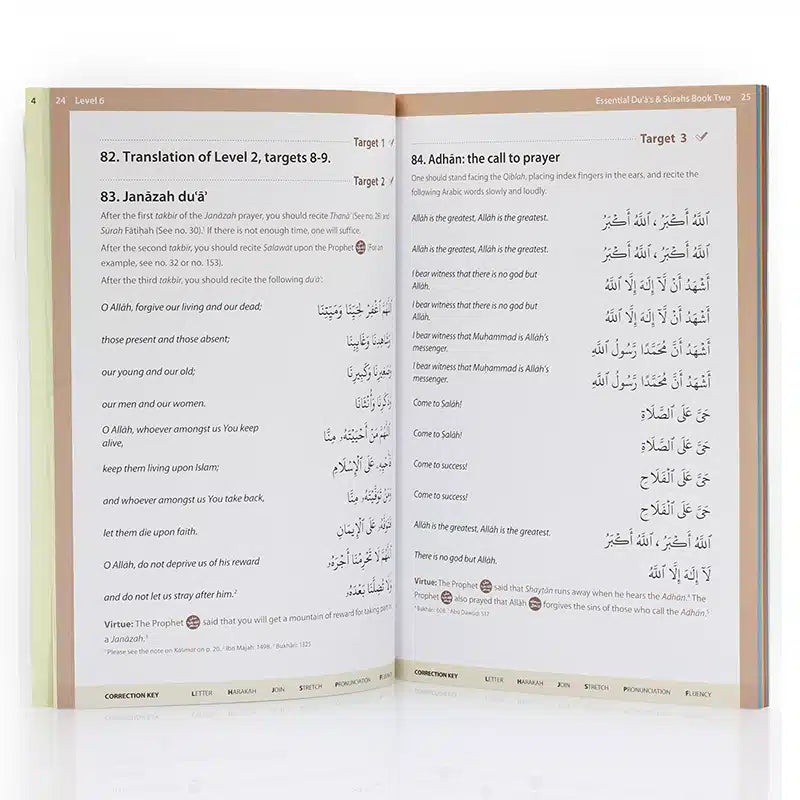 4 24 Level 6
Target 1 ✓
82. Translation of Level 2, targets 8-9.
Target 2 ✓
83. Janāzah du‘ā’
After the first takbir of the Janāzah prayer, you should recite Thanā’ (See no. 28) and
Sūrah Fātiḥah (See no. 30).¹ If there is not enough time, one will suffice.
After the second takbir, you should recite Ṣalawāt upon the Prophet (For an
example, see no. 32 or no. 153).
After the third takbir, you should recite the following du‘ā’:
O Allāh, forgive our living and our dead; اَللّٰهُمَّ اغْفِرْ لِحَيِّنَا وَمَيِّتِنَا
those present and those absent; وَشَاهِدِنَا وَغَائِبِنَا
our young and our old; وَصَغِيْرِنَا وَكَبِيْرِنَا
our men and our women. وَذَكَرِنَا وَأُنْثَانَا
O Allāh, whoever amongst us You keep
alive, اَللّٰهُمَّ مَنْ أَحْيَيْتَهُۥ مِنَّا
keep them living upon Islam; فَأَحْيِهِۦ عَلَى الْإِسْلَامِ
and whoever amongst us You take back, وَمَنْ تَوَفَّيْتَهُۥ مِنَّا
let them die upon faith. فَتَوَفَّهُۥ عَلَى الْإِيمَانِ
O Allāh, do not deprive us of his reward اَللّٰهُمَّ لَا تَحْرِمْنَا أَجْرَهُۥ
and do not let us stray after him.² وَلَا تُضِلَّنَا بَعْدَهُۥ
Virtue: The Prophet said that you will get a mountain of reward for taking part in
a Janāzah.³
¹ Please see the note on Kalimar on p. 20. ² Ibn Majah: 1498. ³ Bukhāri: 1325
CORRECTION KEY LETTER HARAKAH JOIN STRETCH PRONUNCIATION FLUENCY
Essential Du‘ā’s & Sūrahs Book Two 25
Target 3 ✓
84. Adhān: the call to prayer
One should stand facing the Qiblah, placing index fingers in the ears, and recite the
following Arabic words slowly and loudly.
Allāh is the greatest, Allāh is the greatest. اَللّٰهُ أَكْبَرُ ، اَللّٰهُ أَكْبَرُ
Allāh is the greatest, Allāh is the greatest. اَللّٰهُ أَكْبَرُ ، اَللّٰهُ أَكْبَرُ
I bear witness that there is no god but
Allāh. أَشْهَدُ أَنْ لَّآ إِلٰهَ إِلَّا اللّٰهُ
I bear witness that there is no god but
Allāh. أَشْهَدُ أَنْ لَّآ إِلٰهَ إِلَّا اللّٰهُ
I bear witness that Muḥammad is Allāh's
messenger. أَشْهَدُ أَنَّ مُحَمَّدًا رَّسُولُ اللّٰهِ
I bear witness that Muḥammad is Allāh's
messenger. أَشْهَدُ أَنَّ مُحَمَّدًا رَّسُولُ اللّٰهِ
Come to Ṣalāh! حَيَّ عَلَى الصَّلَاةِ
Come to Ṣalāh! حَيَّ عَلَى الصَّلَاةِ
Come to success! حَيَّ عَلَى الْفَلَاحِ
Come to success! حَيَّ عَلَى الْفَلَاحِ
Allāh is the greatest, Allāh is the greatest. اَللّٰهُ أَكْبَرُ ، اَللّٰهُ أَكْبَرُ
There is no god but Allāh. لَآ إِلٰهَ إِلَّا اللّٰهُ
Virtue: The Prophet said that Shayṭān runs away when he hears the Adhān.⁴ The
Prophet also prayed that Allāh forgives the sins of those who call the Adhān.⁵
⁴ Bukhāri: 608. ⁵ Abu Dawūd: 517
CORRECTION KEY LETTER HARAKAH JOIN STRETCH PRONUNCIATION FLUENCY